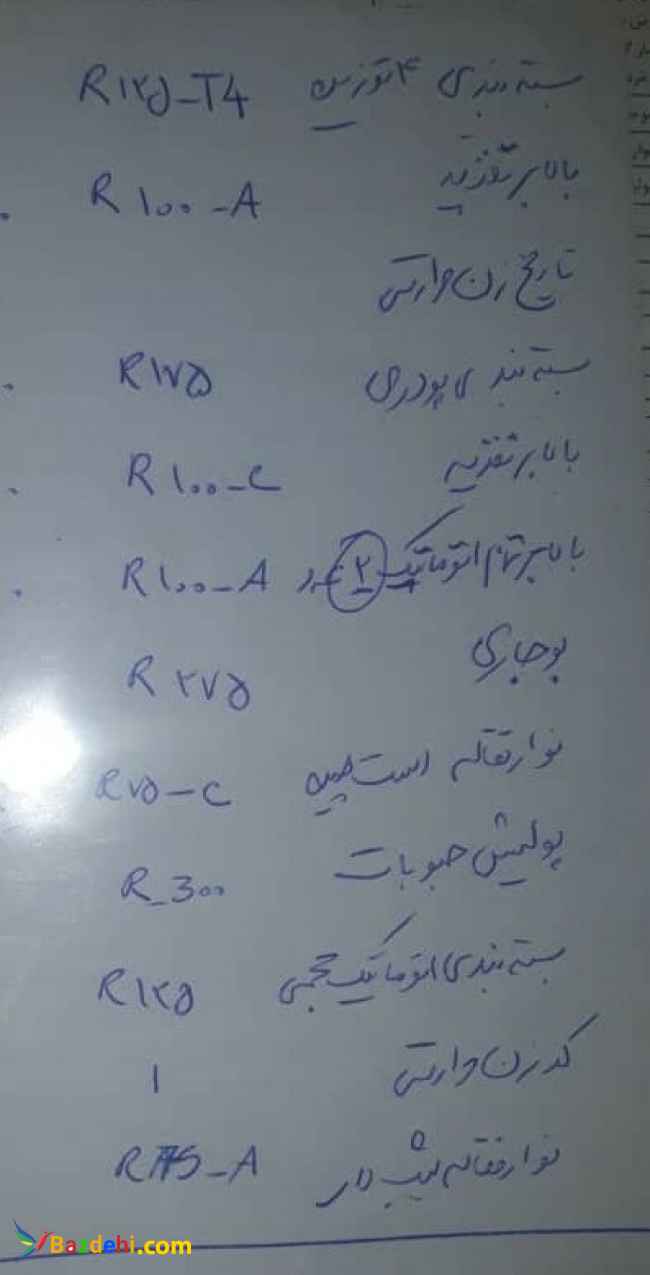 بسته بندی ۴ توزین R۱۲۵_T4
بالابر تغذیه R۱۰۰_A
تاریخ زن حرارتی
بسته بندی پودری R۱۷۵
بالابر تغذیه R۱۰۰_C
بالابر تمام اتوماتیک ۲ عدد R۱۰۰_A
بوجاری R۲۷۵
نوار نقاله R۷۵_C
پولیش حبوبات R_3۰۰
بسته بندی اتوماتیک حجمی R۱۲۵
کد زن حرارتی ۱
نوار نقاله شیب دار _A
Basdehi.com